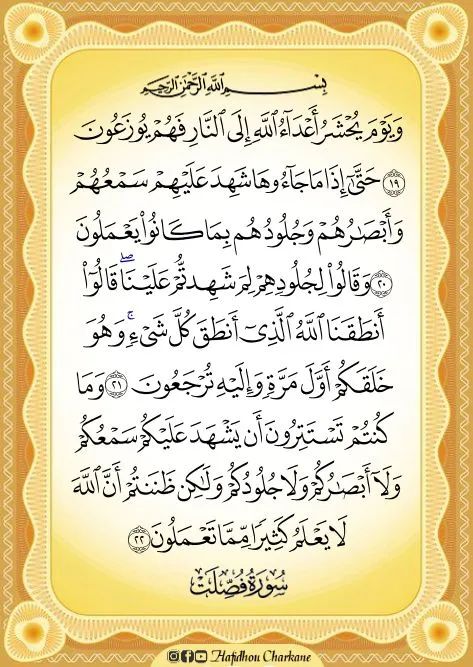 بِسْمِ ٱللَّهِ ٱلرَّحْمَٰنِ ٱلرَّحِيمِ
وَيَوْمَ يُحْشَرُ أَعْدَآءُ ٱللَّهِ إِلَى ٱلنَّارِ فَهُمْ يُوزَعُونَ
١٩ حَتَّىٰٓ إِذَا مَا جَآءُوهَا شَهِدَ عَلَيْهِمْ سَمْعُهُمْ
وَأَبْصَٰرُهُمْ وَجُلُودُهُم بِمَا كَانُوا۟ يَعْمَلُونَ
٢٠ وَقَالُوا۟ لِجُلُودِهِمْ لِمَ شَهِدتُّمْ عَلَيْنَا ۖ قَالُوٓا۟
أَنطَقَنَا ٱللَّهُ ٱلَّذِىٓ أَنطَقَ كُلَّ شَىْءٍ ۚ وَهُوَ
خَلَقَكُمْ أَوَّلَ مَرَّةٍ وَإِلَيْهِ تُرْجَعُونَ ٢١ وَمَا
كُنتُمْ تَسْتَتِرُونَ أَن يَشْهَدَ عَلَيْكُمْ سَمْعُكُمْ
وَلَآ أَبْصَٰرُكُمْ وَلَا جُلُودُكُمْ وَلَٰكِن ظَنَنتُمْ أَنَّ ٱللَّهَ
لَا يَعْلَمُ كَثِيرًا مِّمَّا تَعْمَلُونَ ٢٢
سُورَةُ فُصِّلَتْ
Hafidhou Charkane